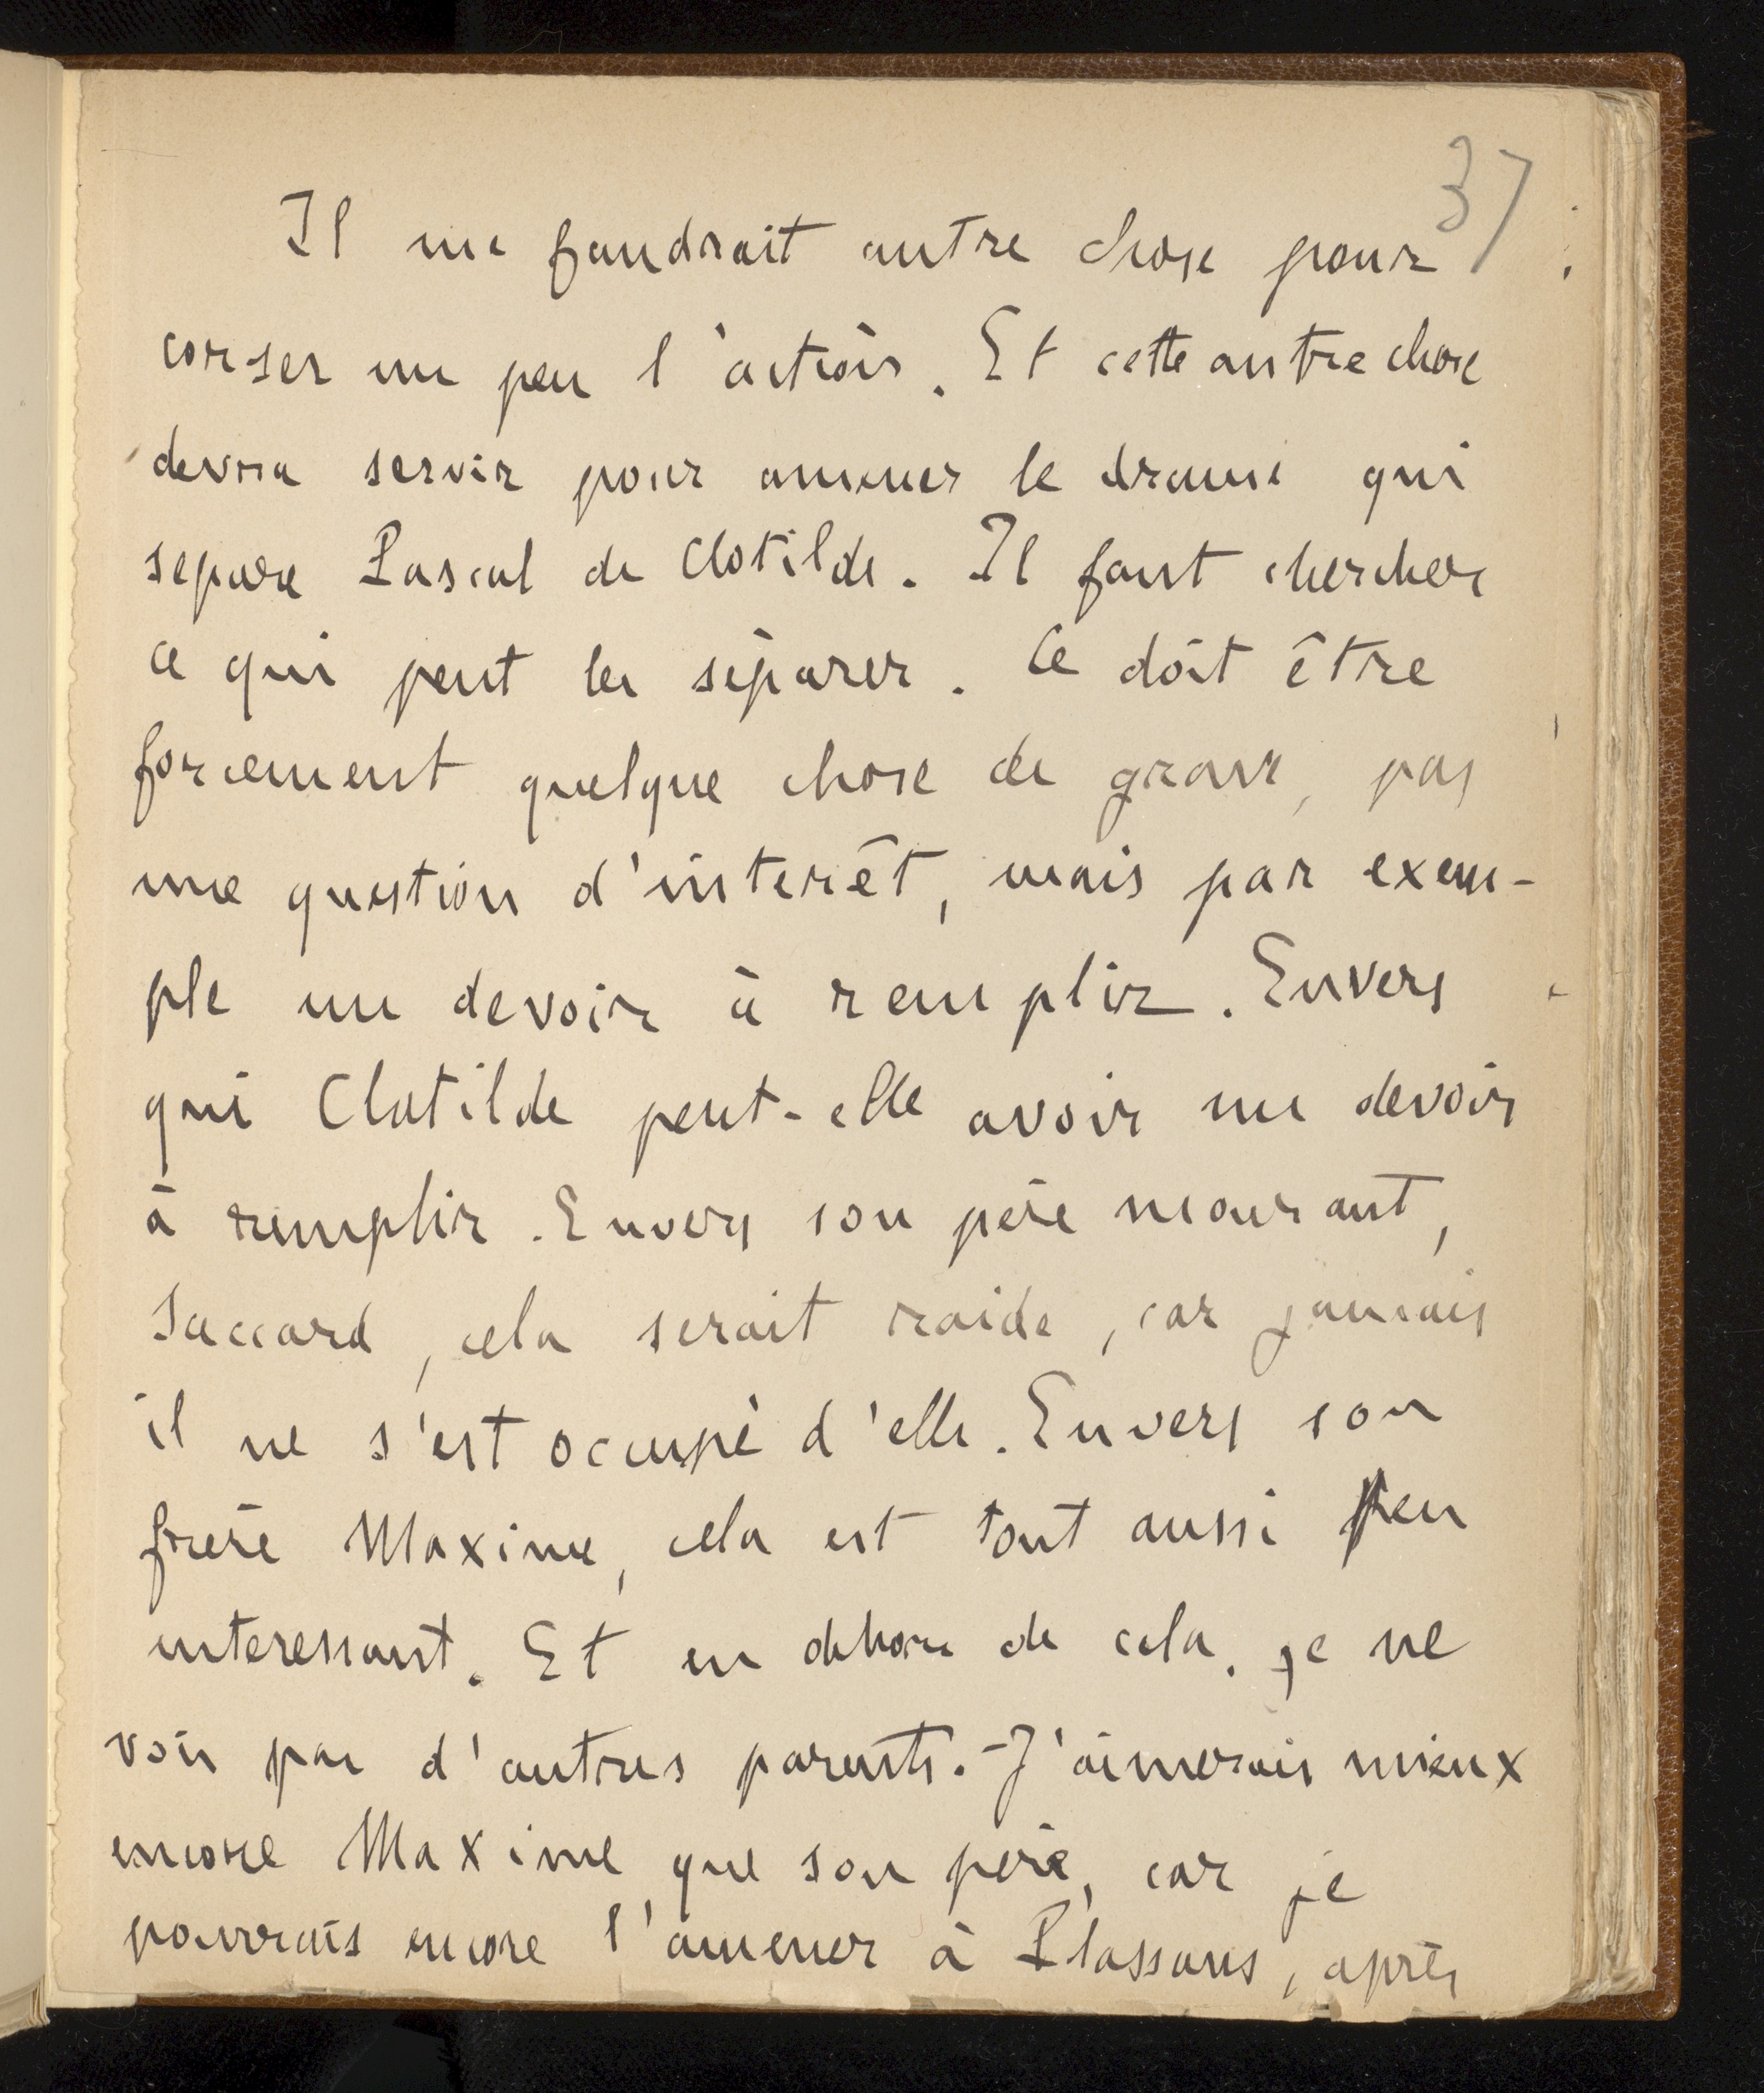 37
Il me faudrait autre chose pour
corser un peu l'action. Et cette autre chose
devra servir pour amener le drame qui
separe Pascal de Clotilde. Il faut chercher
ce qui peut les séparer. Ce doit être
forcement quelque chose de grave, pas
une question d'interêt, mais par exem-
ple un devoir à remplir. Envers
qui Clotilde peut-elle avoir un devoir
à remplir. Envers son père mourant,
Saccard, cela serait raide, car jamais
il ne s'est occupé d'elle. Envers son
frère Maxime, cela est tout aussi peu
interessant. Et en dehors de cela, je ne
vois pas d'autres parents. - J'aimerais mieux
encore Maxime que son père, car je
pourrais encore l'amener à Plassans, après